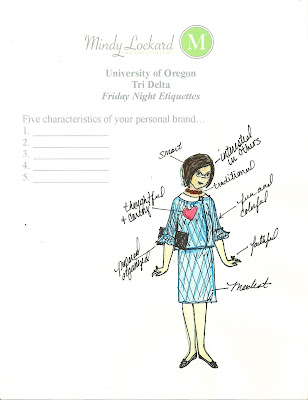 Mindy Lockard M
University of Oregon
Tri Delta
Friday Night Etiquettes
Five characteristics of your personal brand...
1. ___________
2. ___________
3. ___________
4. ___________
5. ___________
smart
interested
in others
traditional
thoughtful
& caring
fun and
colorful
faithful
Modest